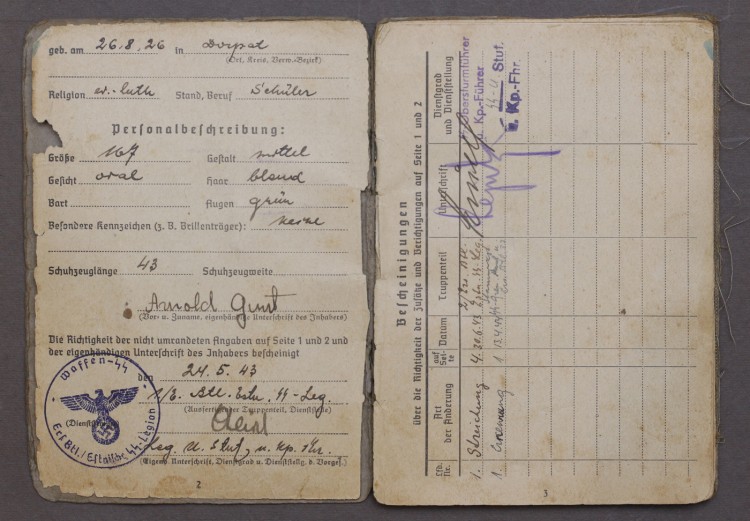 geb. am 26.8.26 in Dorpat
(Ort, Kreis, Verw.-Bezirk)
Religion ev. luth Stand, Beruf Schüler
Personalbeschreibung:
Größe 167 Gestalt mittel
Gesicht oval Haar blond
Bart Augen grün
Besondere Kennzeichen (z. B. Brillenträger): keine
Schuhzeuglänge 43 Schuhzeugweite
Arnold
(Vor- u. Zuname, eigenhändige Unterschrift des Inhabers)
Die Richtigkeit der nicht umrandeten Angaben auf Seite 1 und 2 und
der eigenhändigen Unterschrift des Inhabers bescheinigt
den 24.5.43
1/3. Btl. Estn. SS-Leg.
(Ausfertigender Truppenteil, Dienststelle)
(Dienststempel)
Leg. U. Stuf. u. Kp. Fhr.
(Eigenh. Unterschrift, Dienstgrad u. Dienststellg. d. Vorges.)
Waffen-SS
Ers. Btl./Estnische SS-Legion
2
Bescheinigungen
über die Richtigkeit der Zusätze und Berichtigungen auf Seite 1 und 2
lfd. Nr.
Art der Änderung
auf Seite
Datum
Truppenteil
Unterschrift
Dienstgrad und Dienststellung
1. Streichung 4. 20.6.43
Obersturmführer
u. Kp.-Führer
1. Ernennung 1
Stuf.
u. Kp.-Fhr.
3